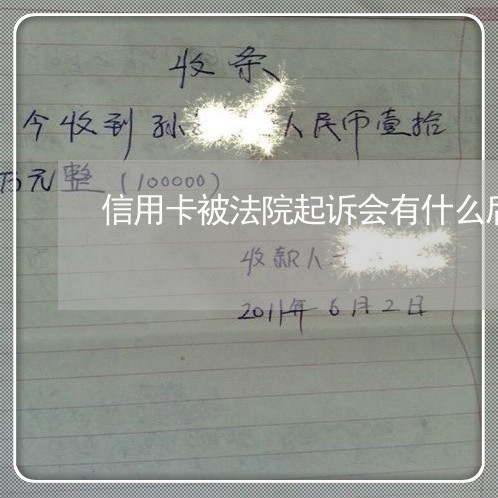 收条
今收到孙 人民币壹拾
万元整 (100000)
信用卡被法院起诉会有什么
收款人
2011年6月2日